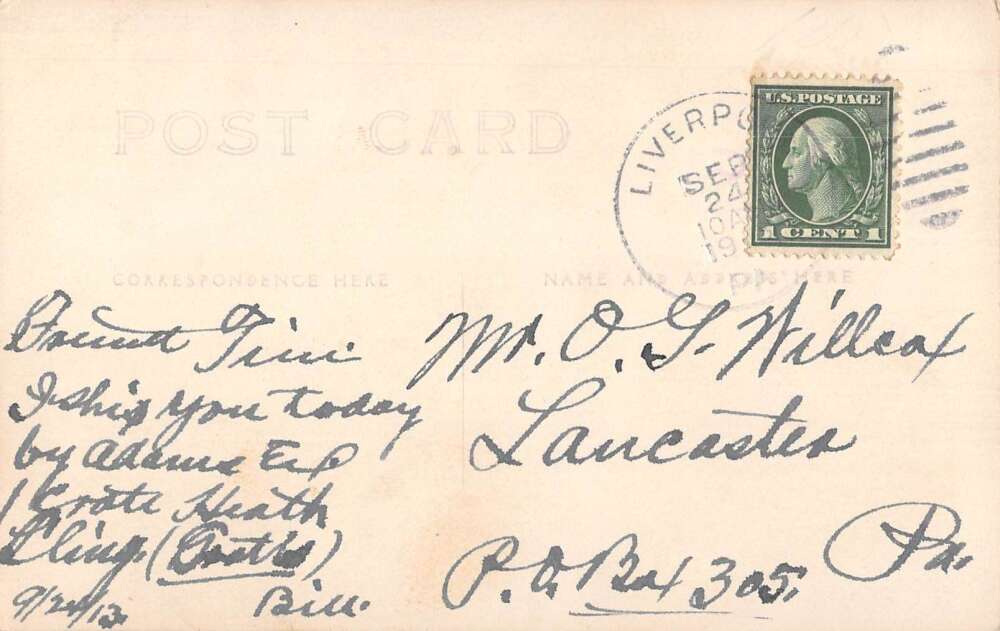 POST CARD
LIVERPO
SEP
24
10 A
19
PA
U.S. POSTAGE
1 CENT 1
CORRESPONDENCE HERE
NAME AND ADDRESS HERE
Friend Tim
I ship you today
by Adams Exp
1 Crate Heath
Cling
9/24/13. Bill.
Mr. O. G. Willcox
Lancaster
Pa.
P.O. Box 305.